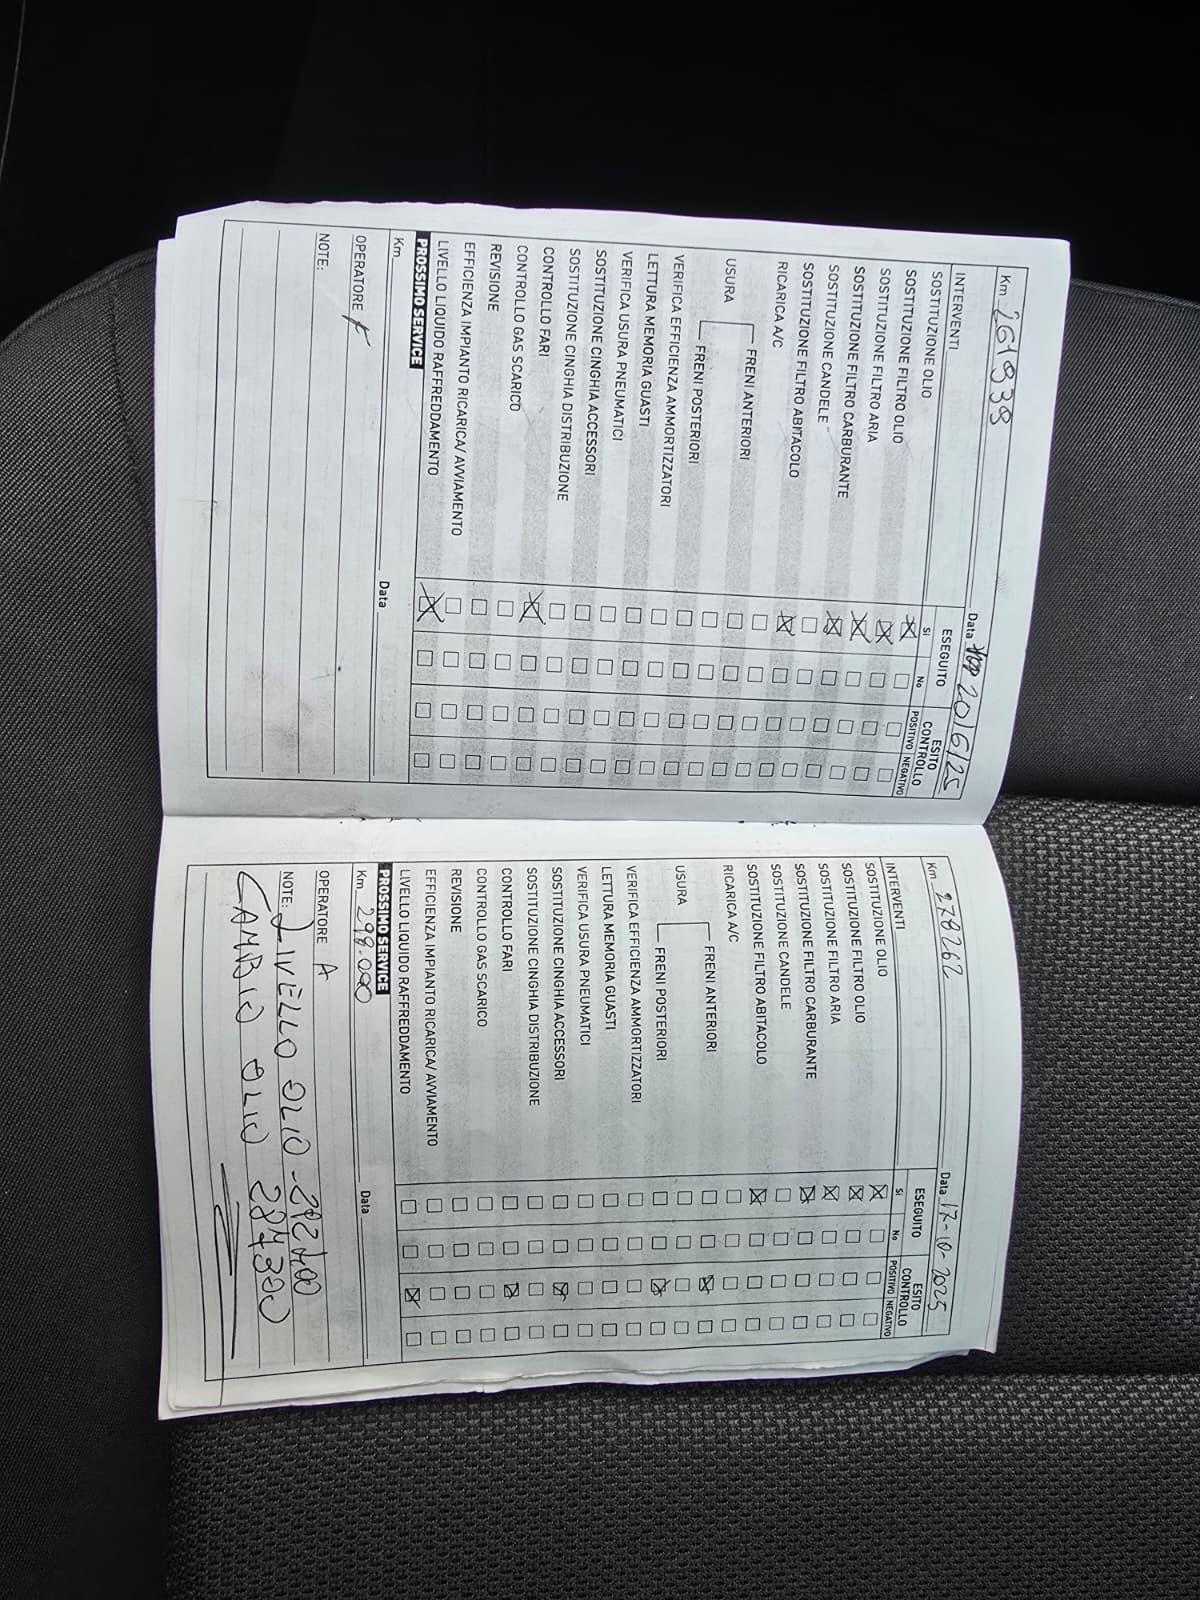 Km 261939 Data 20/6/25
INTERVENTI ESEGUITO ESITO CONTROLLO
SI No POSITIVO NEGATIVO
SOSTITUZIONE OLIO
SOSTITUZIONE FILTRO OLIO
SOSTITUZIONE FILTRO ARIA
SOSTITUZIONE FILTRO CARBURANTE
SOSTITUZIONE CANDELE
SOSTITUZIONE FILTRO ABITACOLO
RICARICA A/C
FRENI ANTERIORI
USURA
FRENI POSTERIORI
VERIFICA EFFICIENZA AMMORTIZZATORI
LETTURA MEMORIA GUASTI
VERIFICA USURA PNEUMATICI
SOSTITUZIONE CINGHIA ACCESSORI
SOSTITUZIONE CINGHIA DISTRIBUZIONE
CONTROLLO FARI
CONTROLLO GAS SCARICO
REVISIONE
EFFICIENZA IMPIANTO RICARICA/ AVVIAMENTO
LIVELLO LIQUIDO RAFFREDDAMENTO
PROSSIMO SERVICE
Km Data
OPERATORE
NOTE:
Km 278262 Data 17-10-2025
INTERVENTI ESEGUITO ESITO CONTROLLO
SI No POSITIVO NEGATIVO
SOSTITUZIONE OLIO
SOSTITUZIONE FILTRO OLIO
SOSTITUZIONE FILTRO ARIA
SOSTITUZIONE FILTRO CARBURANTE
SOSTITUZIONE CANDELE
SOSTITUZIONE FILTRO ABITACOLO
RICARICA A/C
FRENI ANTERIORI
USURA
FRENI POSTERIORI
VERIFICA EFFICIENZA AMMORTIZZATORI
LETTURA MEMORIA GUASTI
VERIFICA USURA PNEUMATICI
SOSTITUZIONE CINGHIA ACCESSORI
SOSTITUZIONE CINGHIA DISTRIBUZIONE
CONTROLLO FARI
CONTROLLO GAS SCARICO
REVISIONE
EFFICIENZA IMPIANTO RICARICA/ AVVIAMENTO
LIVELLO LIQUIDO RAFFREDDAMENTO
PROSSIMO SERVICE
Km 298.000 Data
OPERATORE A
NOTE: LIVELLO OLIO
CAMBIO OLIO